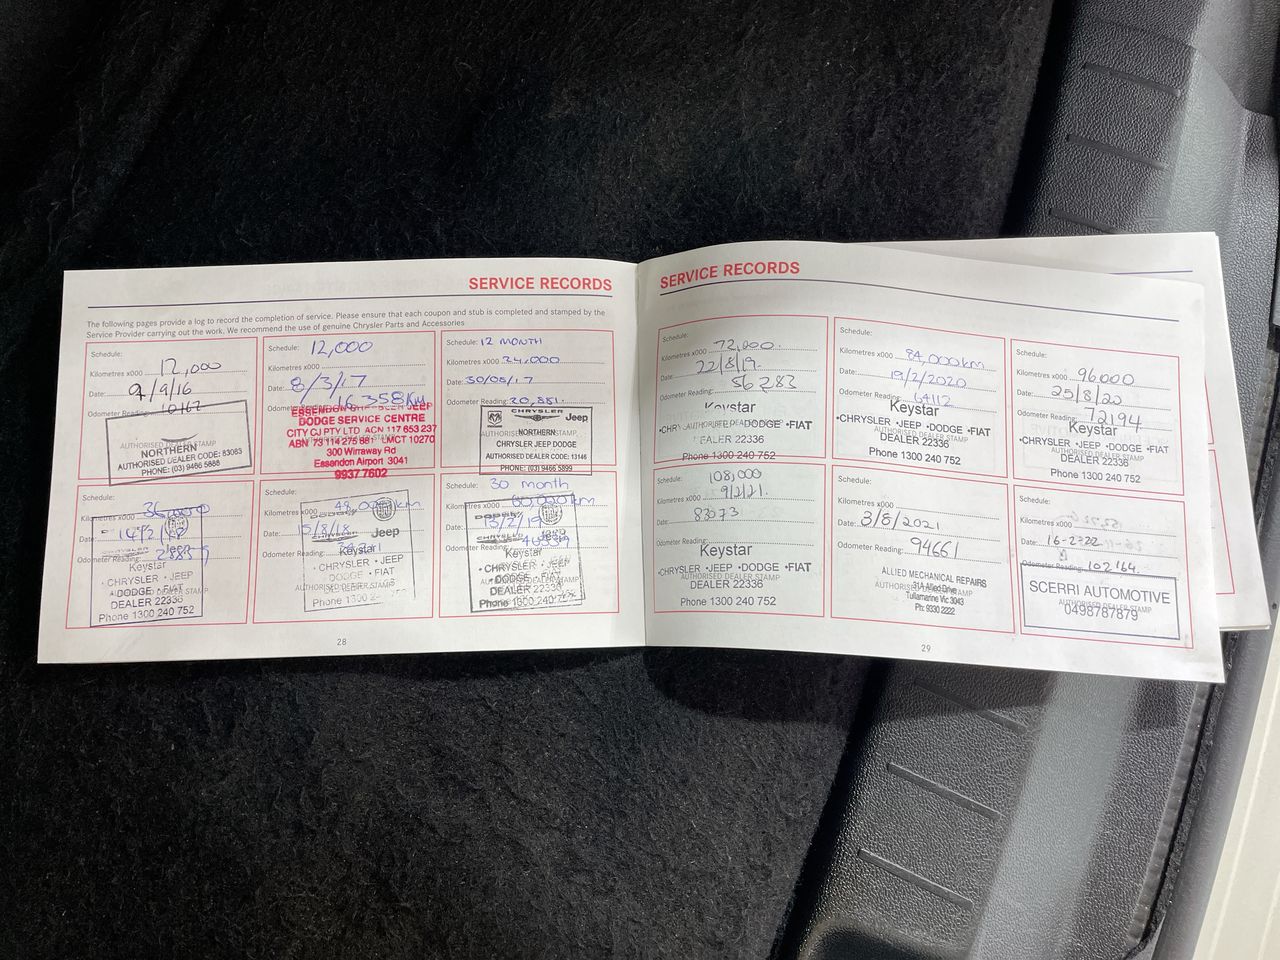 SERVICE RECORDS
The following pages provide a log to record the completion of service. Please ensure that each coupon and stub is completed and stamped by the
Service Provider carrying out the work. We recommend the use of genuine Chrysler Parts and Accessories
Schedule:
Kilometres x000 12,000
Date: 9/9/16
Odometer Reading: 10167
AUTHORISED DEALER STAMP
NORTHERN
AUTHORISED DEALER CODE: 83083
PHONE: (03) 9466 5888
Schedule: 12,000
Kilometres x000
Date: 8/3/17
Odometer Reading: 16358km
ESSENDON JEEP
DODGE SERVICE CENTRE
CITY CJ PTY LTD ACN 117 653 237
ABN 73 114 275 881 LMCT 10270
300 Wirraway Rd
Essendon Airport 3041
9937 7602
Schedule: 12 MONTH
Kilometres x000 24,000
Date: 30/08/17
Odometer Reading: 20,881.
CHRYSLER
Jeep
NORTHERN
CHRYSLER JEEP DODGE
AUTHORISED DEALER CODE: 13146
PHONE: (03) 9466 5899
Schedule:
Kilometres x000 36,000
Date: 14/2/18
Odometer Reading:
Jeep
Keystar
• CHRYSLER • JEEP
• DODGE • FIAT
DEALER 22336
Phone 1300 240 752
Schedule:
Kilometres x000 48,000km
Date: 15/8/18
Odometer Reading:
Jeep
Keystar
• CHRYSLER • JEEP
• DODGE • FIAT
AUTHORISED DEALER STAMP
DEALER 22336
Phone 1300
Schedule: 30 month
Kilometres x000 60,000km
Date: 13/2/19
Odometer Reading:
Jeep
Keystar
• CHRYSLER • JEEP
• DODGE • FIAT
AUTHORISED DEALER STAMP
DEALER 22336
Phone 1300 240 752
28
SERVICE RECORDS
Schedule: 72,000.
Kilometres x000 22/8/19.
Date: 56283
Odometer Reading:
Keystar
•DODGE •FIAT
AUTHORISED DEALER STAMP
DEALER 22336
Phone 1300 240 752
Schedule:
Kilometres x000 84,000km
Date: 19/2/2020
Odometer Reading: 64112
Keystar
•CHRYSLER •JEEP •DODGE •FIAT
AUTHORISED DEALER STAMP
DEALER 22336
Phone 1300 240 752
Schedule:
Kilometres x000 96000
Date: 25/8/20
Odometer Reading: 72194
Keystar
•CHRYSLER •JEEP •DODGE •FIAT
AUTHORISED DEALER STAMP
DEALER 22336
Phone 1300 240 752
Schedule: 108,000
Kilometres x000 9/2/21.
Date: 83073
Odometer Reading:
Keystar
•CHRYSLER •JEEP •DODGE •FIAT
AUTHORISED DEALER STAMP
DEALER 22336
Phone 1300 240 752
Schedule:
Kilometres x000
Date: 3/8/2021
Odometer Reading: 94661
ALLIED MECHANICAL REPAIRS
AUTHORISED DEALER STAMP
31A Allied Drive
Tullamarine Vic 3043
Ph: 9330 2222
Schedule:
Kilometres x000
Date: 16-2-22
Odometer Reading: 102164.
SCERRI AUTOMOTIVE
AUTHORISED DEALER STAMP
0498787879
29